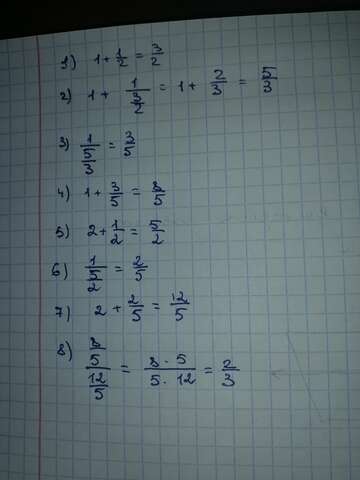 1) 1 + 1/2 = 3/2
2) 1 + 1/(3/2) = 1 + 2/3 = 5/3
3) 1/(5/3) = 3/5
4) 1 + 3/5 = 8/5
5) 2 + 1/2 = 5/2
6) 1/(5/2) = 2/5
7) 2 + 2/5 = 12/5
8) (8/5)/(12/5) = (8 · 5)/(5 · 12) = 2/3